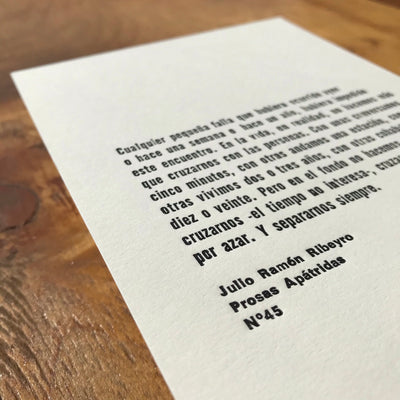 Cualquier pequeña falla que hubiera ocurrido ayer
o hace una semana o hace un año, hubiera impedido
este encuentro. En la vida, en realidad, no hacemos más
que cruzarnos con las personas. Con unas conversamos
cinco minutos, con otras andamos una estación, con
otras vivimos dos o tres años, con otras
diez o veinte. Pero en el fondo no hacemos
cruzarnos -el tiempo no interesa-,
por azar. Y separarnos siempre.
Julio Ramón Ribeyro
Prosas Apátridas
N°45